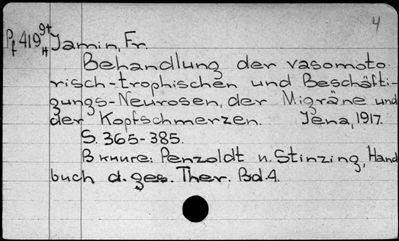 4
Pf 419 9t/4 Jamin, Fr.
Behandlung der vasomoto
risch-trophischen und Beschäfti-
gungs-Neurosen, der Migräne und
der Kopfschmerzen. Jena, 1917.
S. 365-385.
В книге: Penzoldt u. Stinzing, Hand
buch d. ges. Ther. Bd. 4.